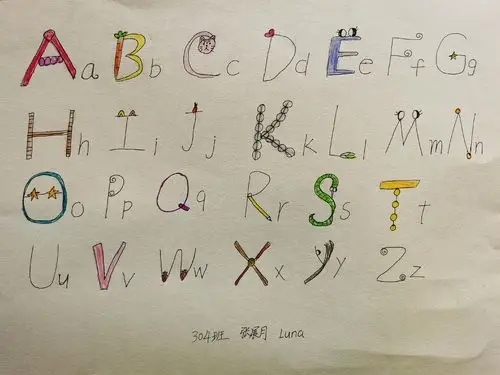 Aa Bb Cc Dd Ee Ff Gg
Hh Ii Jj Kk Ll Mm Nn
Oo Pp Qq Rr Ss Tt
Uu Vv Ww Xx Yy Zz
304班 张展月 Luna